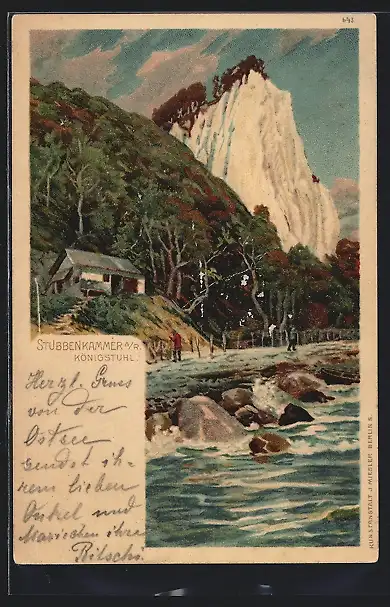 642
STUBBENKAMMER A/R.
KÖNIGSTUHL.
Herzl. Gruss
von der
Ostsee
sendet ih-
rem lieben
Onkel und
Mariechen ihre
KUNSTANSTALT J. MIESLER, BERLIN S.